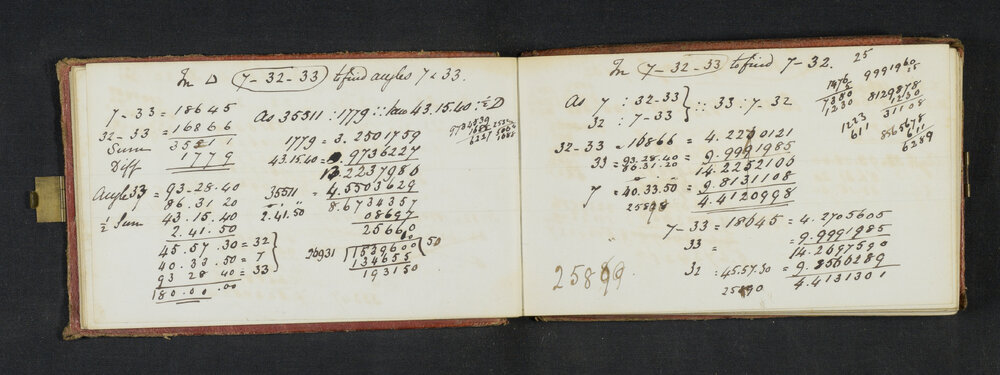 In △ 7-32-33 to find angles 7 & 33.
7-33 = 18645
32-33 = 16866
Sum 35511
Diff 1779
As 35511 : 1779 :: tan 43.15.40 : ½ D
1779 = 3.2501759
43.15.40 = 9.9736227
13.2237980
35511 = 4.5503629
8.6734357
08697
25660
Angle 33 = 93-28.40
86.31 20
½ Sum 43.15.40
2.41.50
2.41.50
45.57.30 = 32
40.33.50 = 7
93 28 40 = 33
180.00.00
26931 1539600 50
134655
193150
In 7-32-33 to find 7-32. 25
As 7 : 32-33 } :: 33 : 7-32
32 : 7-33
32-33 = 16866 = 4.2270121
33 = 93.28.40 = 9.9991985
86.31.20
14.2262106
7 = 40.33.50 = 9.8131108
4.4120998
7-33 = 18645 = 4.2705605
33 = = 9.9991985
14.2697590
32 : 45.57.30 = 9.8566289
4.4131301
7380
1230
9991960
8129878
1230
31108
1223
611
8565678
611
6289